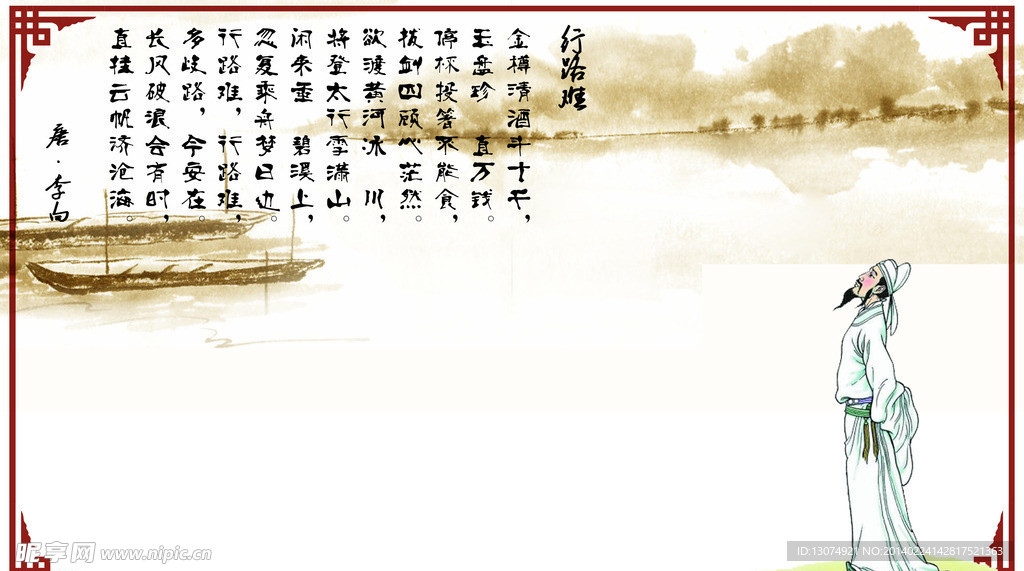 行路难
金樽清酒斗十千，
玉盘珍 直万钱。
停杯投箸不能食，
拔剑四顾心茫然。
欲渡黄河冰 川，
将登太行雪潇山。
闲来垂 碧溪上，
忽复乘舟梦日边。
行路难，行路难，
多歧路，今安在。
长风破浪会有时，
直挂云帆济沧海。
唐·李白
昵享网 www.nipic.cn
ID:13074921 NO:20140224142817521363